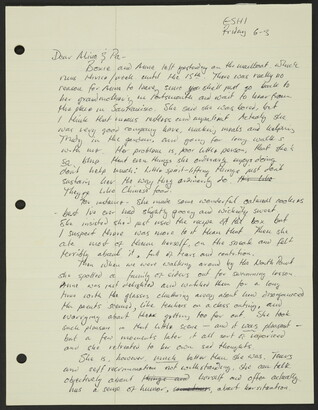 ESHI
Friday 6-3
Dear Ming & Pa-
Bowie and Anna left yesterday on the mailboat which
runs twice/week until the 15th. There was really no
reason for Anna to leave, since you she'll just go back to
her grandmother's in Portsmouth and wait to hear from
the place in She said she was bored, but
I think that means restless and expectant. Actually she
was very good company here, making meals and helping
Trudy in the garden, and going for long walks
with me. The problem is, poor little person, that she's
so that even things she ordinarily enjoys doing
don't help much: little spirit-lifting things just don't
sustain her the way they ordinarily do.
They're like Chinese food.
For instance - she made some wonderful oatmeal cookies
- best I've ever had slightly gooey and wickedly sweet.
She insisted she'd just used the recipe off the box but
I suspect there was more to it than that. Then she
ate most of them herself, on the sneak and felt
terribly about it. Lots of tears and
Then when we were walking around by the North Point
she spotted a family of eiders out for swimming lesson.
Anna was just delighted and watched them for a long
time with the glasses clucking away about how disorganized
the parents seemed, like teachers on a class outing, and
worrying about those getting too far out. She took
such pleasure in that little scene - and it was pleasant -
but a few moments later it all sort of
and she retreated to her own sad thoughts.
She is, however, much better than she was. Tears
and self recrimination not withstanding, she can talk
objectively about things and herself and often actually
has a sense of humor, about her situation